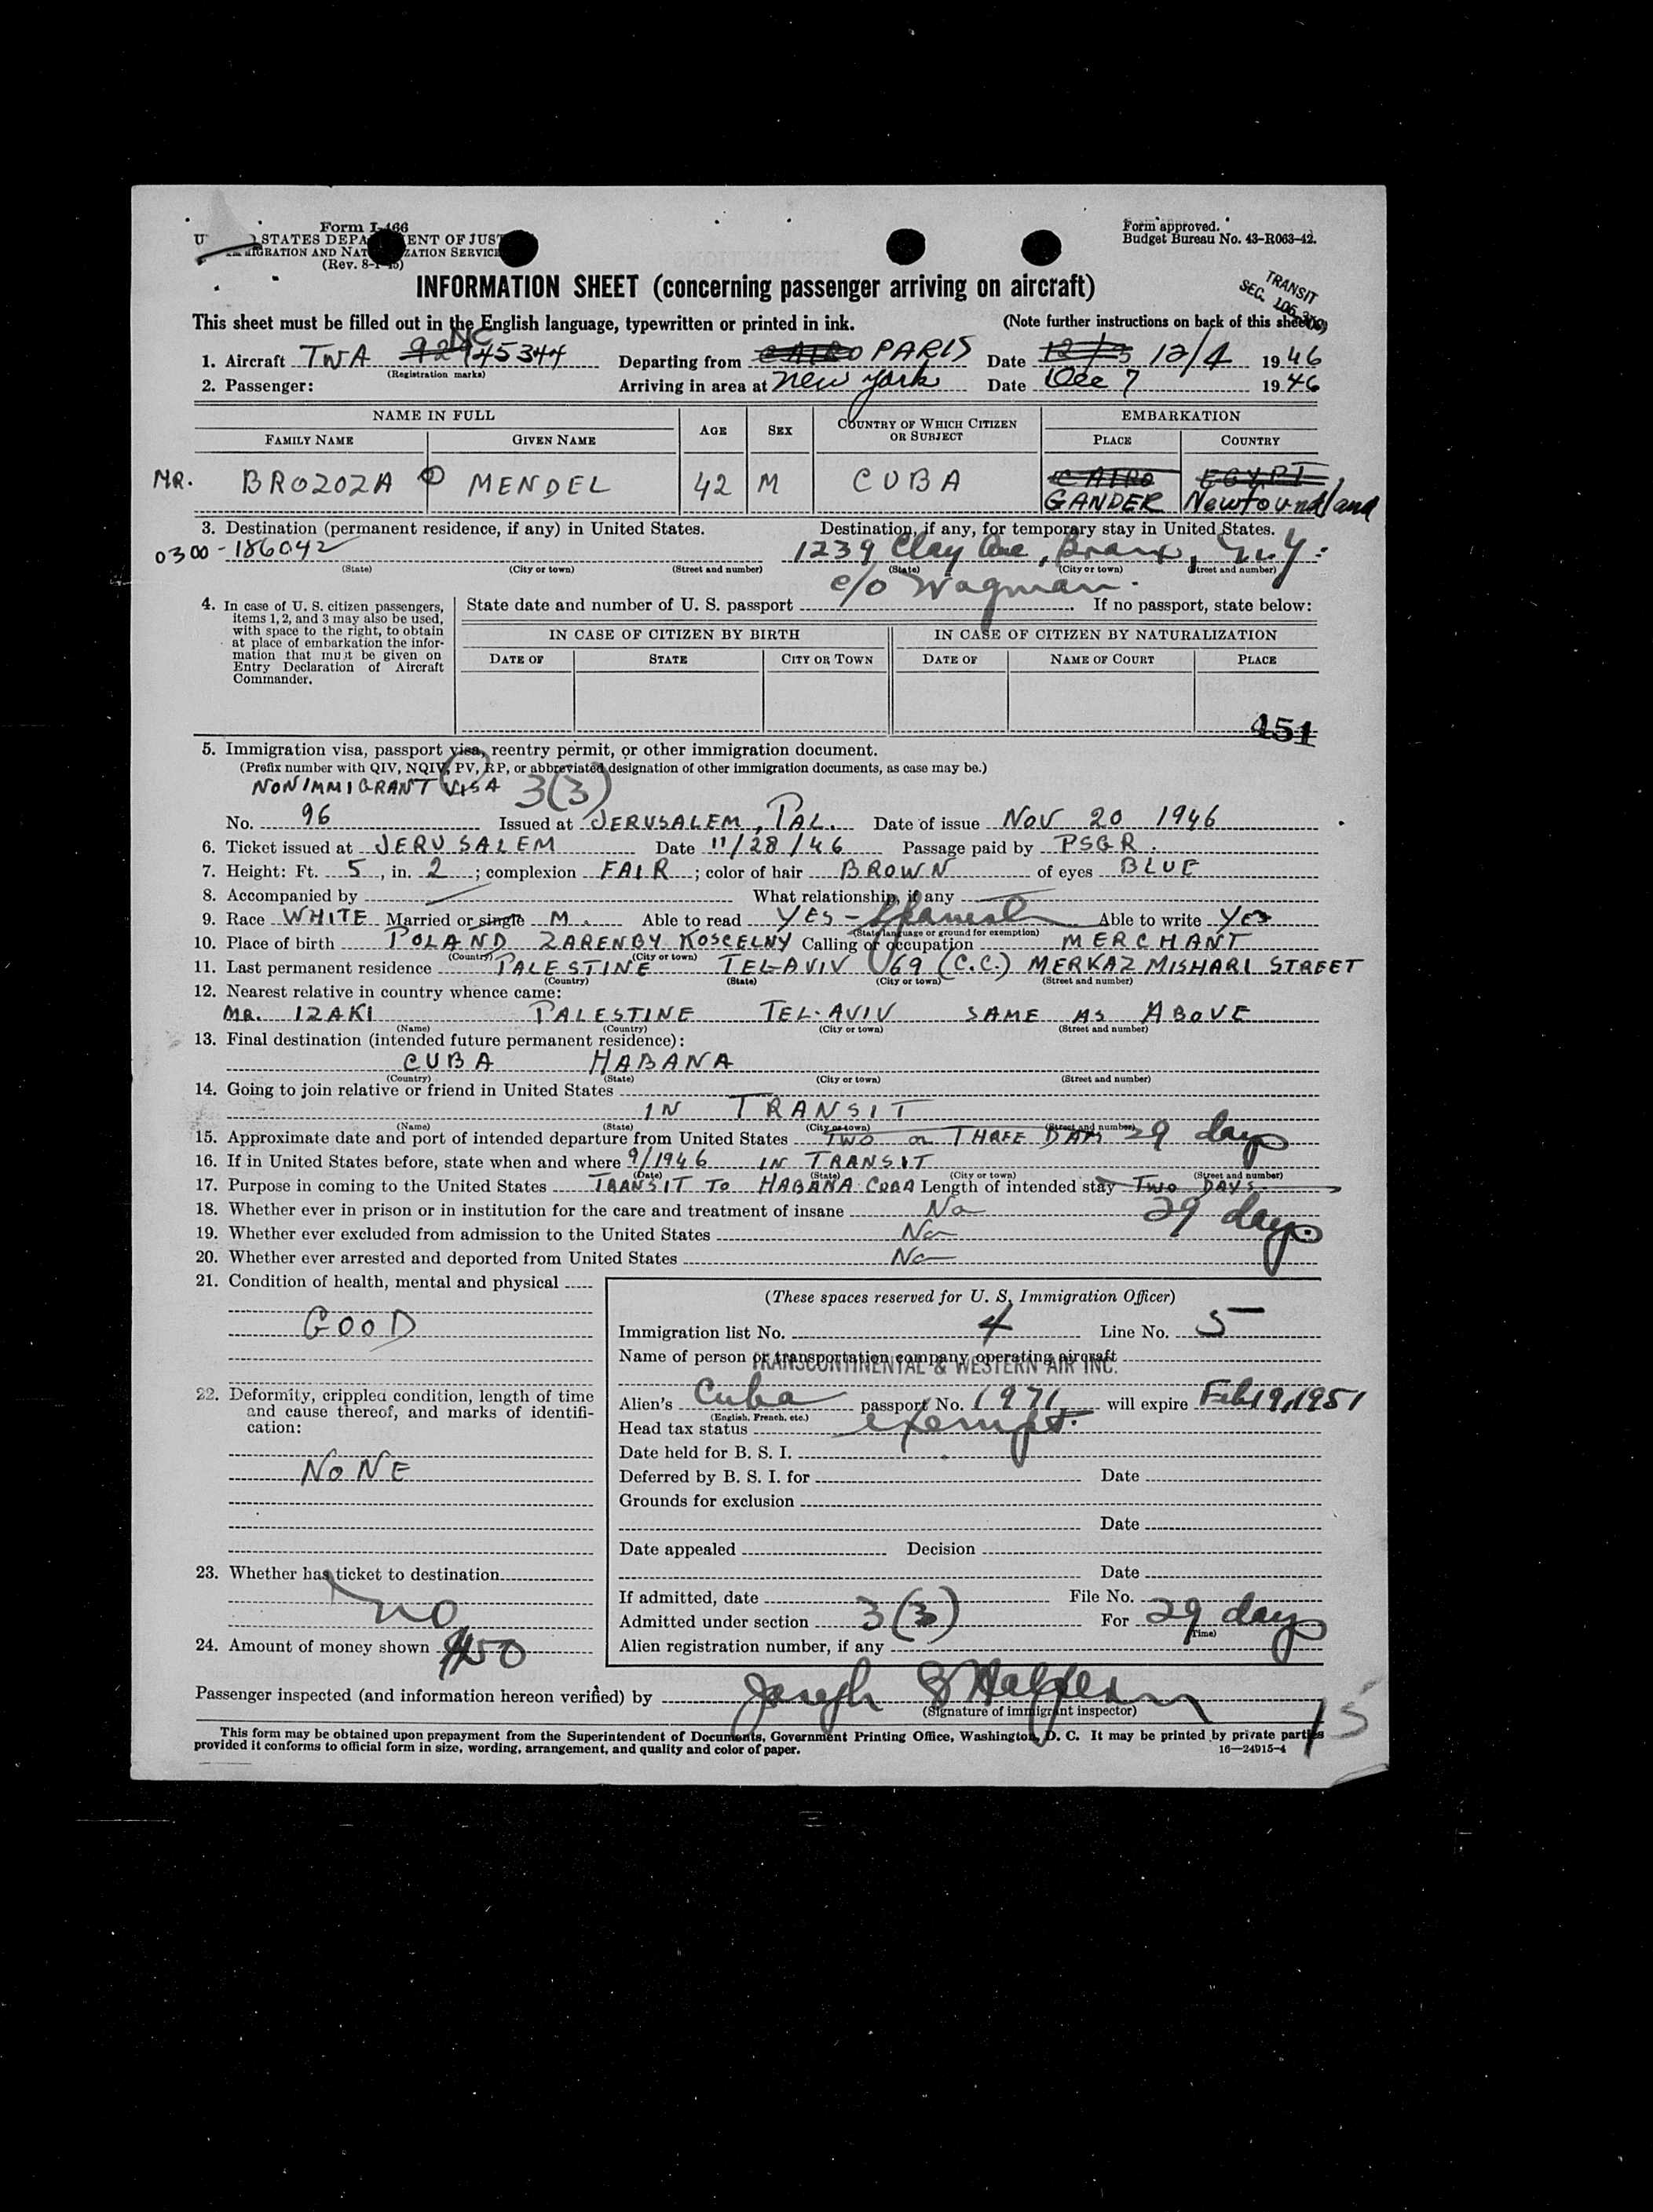 Form I-466
STATES DEPA ENT OF JUS
IGRATION AND NAT ZATION SERVICE
(Rev. 8-1-45)
Form approved.
Budget Bureau No. 43-R063-42.
INFORMATION SHEET (concerning passenger arriving on aircraft)
TRANSIT
SEC.
This sheet must be filled out in the English language, typewritten or printed in ink. (Note further instructions on back of this sheet)
1. Aircraft TWA NC 45344 Departing from CAIRO PARIS Date 12/3 12/4 1946
(Registration marks)
2. Passenger: Arriving in area at New York Date Dec 7 1946
NAME IN FULL AGE SEX COUNTRY OF WHICH CITIZEN OR SUBJECT EMBARKATION
FAMILY NAME GIVEN NAME PLACE COUNTRY
MR. BROZOZA MENDEL 42 M CUBA CAIRO EGYPT
GANDER Newfoundland
3. Destination (permanent residence, if any) in United States. Destination, if any, for temporary stay in United States.
0300-186042 1239 Clay Ave, Bronx, N.Y.
(State) (City or town) (Street and number) (State) (City or town) (Street and number)
c/o Wagman.
4. In case of U. S. citizen passengers, items 1, 2, and 3 may also be used, with space to the right, to obtain at place of embarkation the information that must be given on Entry Declaration of Aircraft Commander.
State date and number of U. S. passport If no passport, state below:
IN CASE OF CITIZEN BY BIRTH IN CASE OF CITIZEN BY NATURALIZATION
DATE OF STATE CITY OR TOWN DATE OF NAME OF COURT PLACE
451
5. Immigration visa, passport visa, reentry permit, or other immigration document.
(Prefix number with QIV, NQIV, PV, RP, or abbreviated designation of other immigration documents, as case may be.)
NONIMMIGRANT VISA 3(3)
No. 96 Issued at JERUSALEM, PAL. Date of issue NOV 20 1946
6. Ticket issued at JERUSALEM Date 11/28/46 Passage paid by PSGR.
7. Height: Ft. 5, in. 2; complexion FAIR; color of hair BROWN of eyes BLUE
8. Accompanied by What relationship, if any
9. Race WHITE Married or single M. Able to read YES - Spanish Able to write YES
(State language or ground for exemption)
10. Place of birth POLAND ZARENBY KOSCELNY Calling or occupation MERCHANT
(Country) (City or town)
11. Last permanent residence PALESTINE TEL-AVIV 69 (C.C.) MERKAZ MISHARI STREET
(Country) (State) (City or town) (Street and number)
12. Nearest relative in country whence came:
MR. IZAKI PALESTINE TEL-AVIV SAME AS ABOVE
(Name) (Country) (City or town) (Street and number)
13. Final destination (intended future permanent residence):
CUBA HABANA
(Country) (State) (City or town) (Street and number)
14. Going to join relative or friend in United States
IN TRANSIT
(Name) (State) (City or town) (Street and number)
15. Approximate date and port of intended departure from United States TWO or THREE DAYS 29 days
16. If in United States before, state when and where 9/1946 IN TRANSIT
(Date) (State) (City or town) (Street and number)
17. Purpose in coming to the United States TRANSIT TO HABANA CUBA Length of intended stay TWO DAYS
29 days.
18. Whether ever in prison or in institution for the care and treatment of insane No
19. Whether ever excluded from admission to the United States No
20. Whether ever arrested and deported from United States No
21. Condition of health, mental and physical
GOOD
22. Deformity, crippled condition, length of time and cause thereof, and marks of identification:
NONE
23. Whether has ticket to destination
no
24. Amount of money shown
(These spaces reserved for U. S. Immigration Officer)
Immigration list No. 4 Line No. 5
Name of person or transportation company operating aircraft
TRANSCONTINENTAL & WESTERN AIR INC.
Alien's Cuba passport No. 1971 will expire Feb 19, 1951
(English, French, etc.)
Head tax status exempt.
Date held for B. S. I.
Deferred by B. S. I. for Date
Grounds for exclusion
Date
Date appealed Decision
Date
If admitted, date File No.
Admitted under section 3(3) For 29 days
(Time)
Alien registration number, if any
Passenger inspected (and information hereon verified) by Joseph S Halpern
(Signature of immigrant inspector)
15
This form may be obtained upon prepayment from the Superintendent of Documents, Government Printing Office, Washington, D. C. It may be printed by private parties
provided it conforms to official form in size, wording, arrangement, and quality and color of paper. 16—24915-4